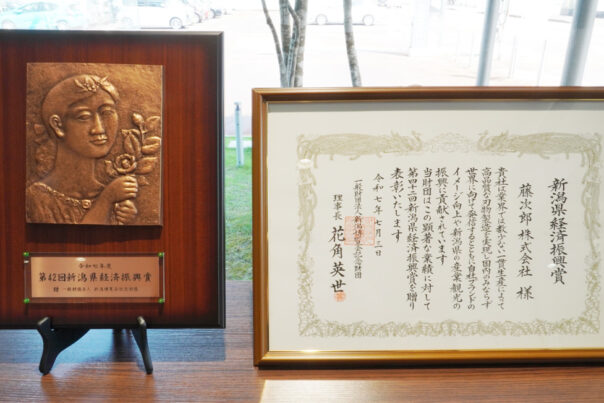 令和七年度
第42回新潟県経済振興賞
贈 一般財団法人 新潟博覧会記念財団
新潟県経済振興賞
藤次郎 株式会社 様
貴社は業界では数少ない一貫生産によって
高品質な刃物製造を実現し国内のみならず
世界に向けて発信するとともに自社ブランドの
イメージ向上や新潟県の産業観光の
振興に貢献されています
当財団はこの顕著な業績に対して
第四十二回新潟県経済振興賞を贈り
表彰いたします
令和七年七月二日
一般財団法人新潟博覧会記念財団
理事長 花角英世